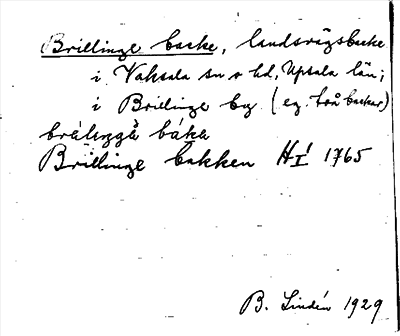 Brillinge backe, landsvägsbacke
i Vaksala sn o hd, Upsala län;
i Brillinge by. (eg. två backar)
Brillinge bakken HÍ 1765
B. Lindén 1929